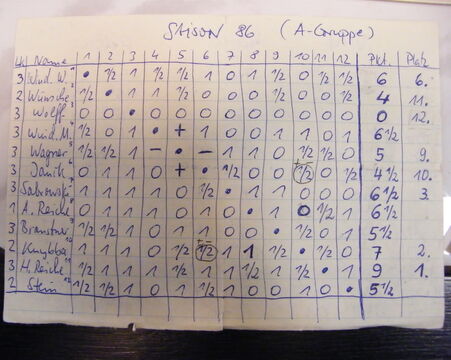 SAISON 86 (A-Gruppe)
Name 1 2 3 4 5 6 7 8 9 10 11 12 Pkt. Platz
3 Wud. W. • 1/2 1 1/2 1/2 1 0 1 1/2 0 1/2 1/2 6 6.
2 Wünsche 1/2 • 1 1 1/2 0 0 0 1/2 0 0 1/2 4 11.
3 Wolff 0 0 • 0 0 0 0 0 0 0 0 0 0 12.
3 Wud. M. 1/2 0 1 • + 1 0 0 1 1 0 1 6 1/2
3 Wagner 1/2 1/2 1 - • - 1 1 0 1/2 1/2 0 5 9.
3 0 1 1 0 + • 1/2 0 0 1/2 0 1/2 4 1/2 10.
3 1 1 1 1 0 1/2 • 1 1 0 0 0 6 1/2 3.
1 A. Reiche 0 1 1 1 0 1 0 • 1 0 1/2 1 6 1/2
3 1/2 1/2 1 0 1 1 0 0 • 1/2 0 1 5 1/2
2 1 1 1 0 1/2 1/2 1 1 1/2 • 1/2 0 7 2.
3 H. Reiche 1/2 1 1 1 1/2 1 1 1/2 1 1/2 • 1 9 1.
2 Stein 1/2 1/2 1 0 1 1/2 1 0 0 1 0 • 5 1/2